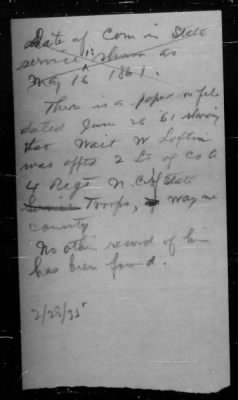 Date of Com in State
service is shown as
May 16 1861.
There is a paper on file
dated June 26 61 showing
that Wait W Loftin
was apptd 2 Lt of Co A
4 Regt N.C. State
Troops, Wayne
county
No other record of him
has been found.
2/28/35